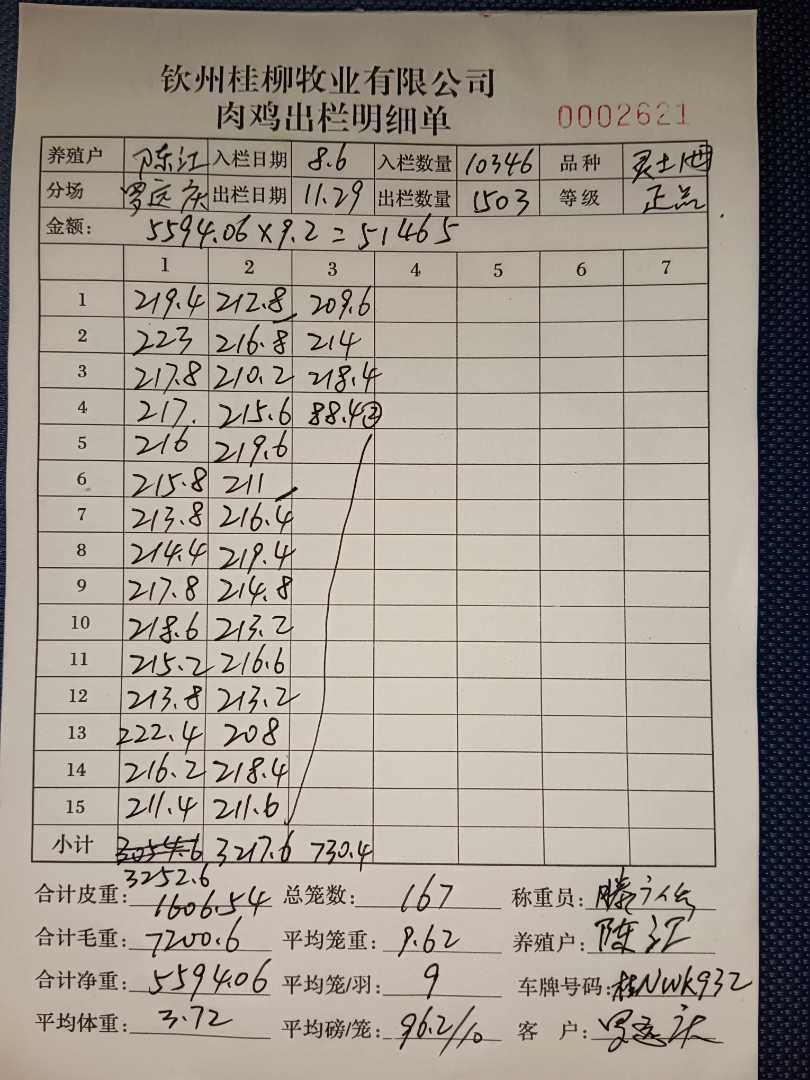 钦州桂柳牧业有限公司
肉鸡出栏明细单 0002621
养殖户 陈江 入栏日期 8.6 入栏数量 10346 品种 灵土
分场 罗远庆 出栏日期 11.29 出栏数量 1503 等级 正品
金额: 5594.06×9.2=51465
1 2 3 4 5 6 7
1 219.4 212.8 209.6
2 223 216.8 214
3 217.8 210.2 218.4
4 217. 215.6 88.4②
5 216 219.6
6 215.8 211
7 213.8 216.4
8 214.4 219.4
9 217.8 214.8
10 218.6 213.2
11 215.2 216.6
12 213.8 213.2
13 222.4 208
14 216.2 218.4
15 211.4 211.6
小计 3054.6 3217.6 730.4
3252.6
合计皮重: 1606.54 总笼数: 167 称重员:
合计毛重: 7200.6 平均笼重: 9.62 养殖户: 陈江
合计净重: 5594.06 平均笼/羽: 9 车牌号码: 桂NWK932
平均体重: 3.72 平均磅/笼: 96.2/10 客 户: 罗远庆